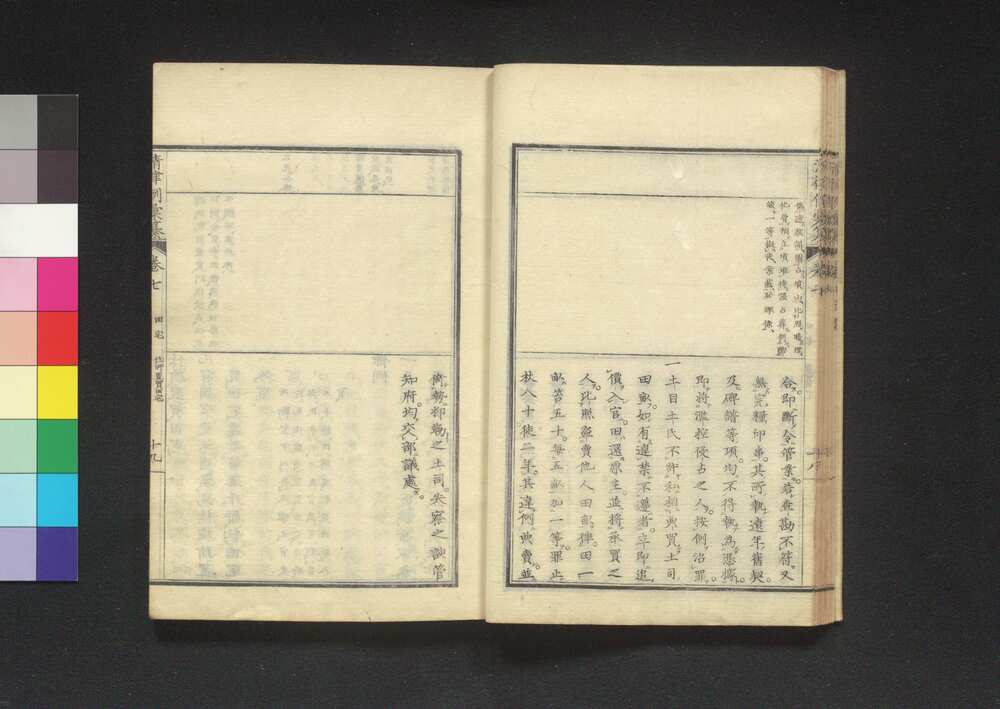 合即斷令管業若查勘不符又
無完糧印串其所執遠年舊契
及碑譜等項均不得執為憑據
即將濫控侵占之人按例治罪
一土目土民不許私相典買土司
田畝如有違禁不遵者立即追
價入官田還原主並將承買之
人比照盜賣他人田畝律田一
畝笞五十每五畝加一等罪止
杖八十徒二年其違例典賣並
倚勢抑勒之土司失察之該管
知府均交部議處
清律例彙纂
卷七
田宅
典買田宅
十九